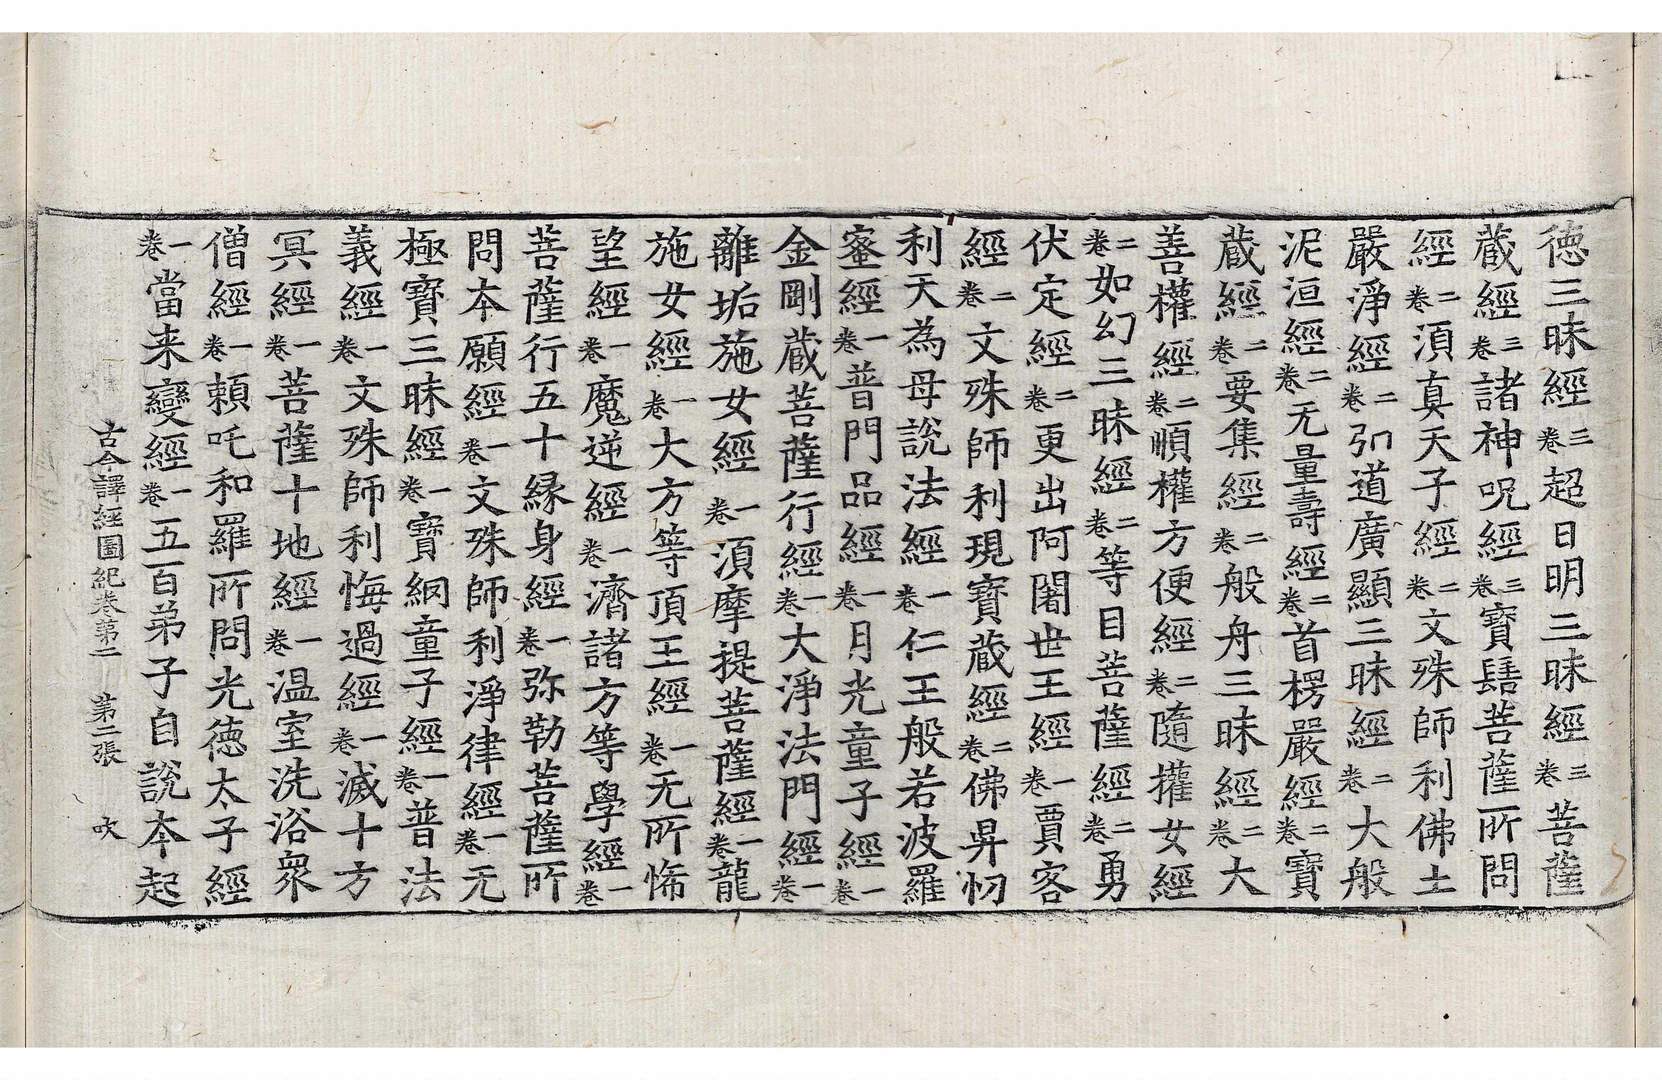 徳三昧經三卷超日明三昧經三卷菩薩
蔵經三卷諸神呪經三卷寶髻菩薩所問
經二卷湏真天子經二卷文殊師利佛土
嚴淨經二卷弘道廣顯三昧經二卷大般
泥洹經二卷无量壽經二卷首楞嚴經二卷寶
蔵經二卷要集經二卷般舟三昧經二卷大
善權經二卷順權方便經二卷隨權女經
二卷如幻三昧經二卷等目菩薩經二卷勇
伏定經二卷更出阿闍世王經一卷賈客
經二卷文殊師利現寶蔵經二卷佛昇忉
利天為母說法經一卷仁王般若波羅
蜜經一卷普門品經一卷月光童子經一卷
金剛蔵菩薩行經一卷大淨法門經一卷
離垢施女經一卷湏摩提菩薩經一卷龍
施女經一卷大方等頂王經一卷无所悕
望經一卷魔逆經一卷濟諸方等學經一卷
菩薩行五十縁身經一卷弥勒菩薩所
問本願經一卷文殊師利淨律經一卷无
極寶三昧經一卷寶網童子經一卷普法
義經一卷文殊師利悔過經一卷滅十方
冥經一卷菩薩十地經一卷温室洗浴衆
僧經一卷頼吒和羅所問光徳太子經
一卷當来變經一卷五百弟子自說本起
古今譯經圖紀卷第二 第二張 吹